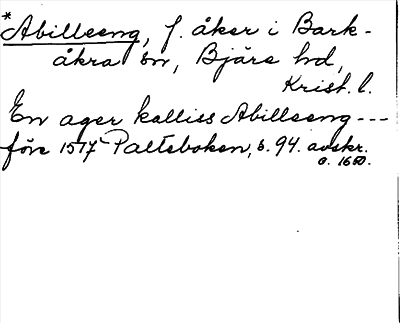 *Abilleeng, f. åker i Bark-
åkra sn, Bjäre hd,
Krist. l.
En ager kalliss Abilleeng ---
före 1517 Palteboken, s. 94. avskr.
o. 1650.